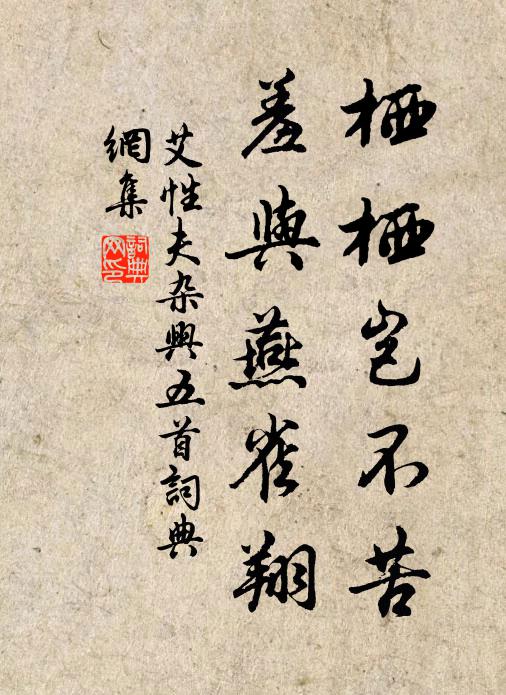 栖栖岂不苦
羞與燕雀翔
艾性夫杂興五首詞典
網集
詞典
网印